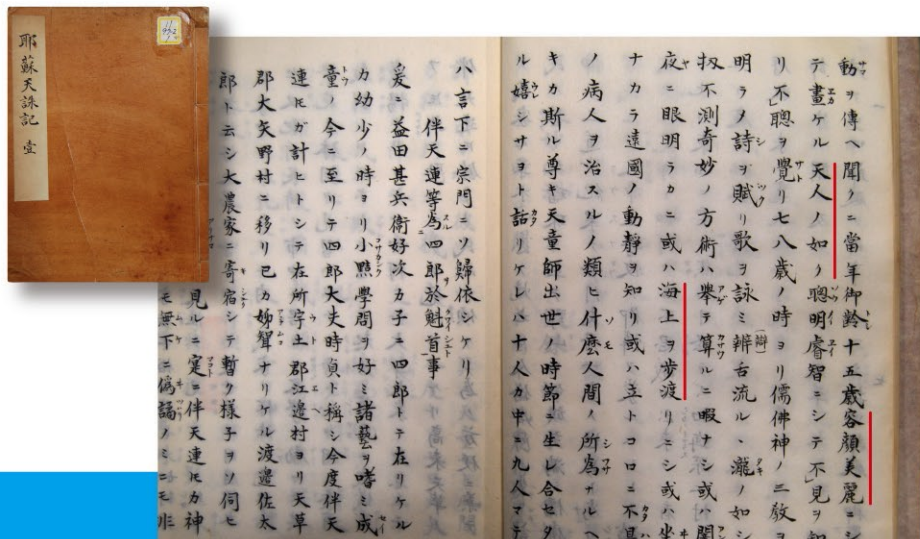 耶蘇天誅記 壹
動ヲ傳ヘ聞クニ當年御齡十五歳容顔美麗ニシ
テ畫ケル天人ノ如ク聰明睿智ニシテ不見ヲ知
リ不聰ヲ覺リ七八歳ノ時ヨリ儒佛神ノ三教ヲ
明ラメ詩ヲ賦リ歌ヲ詠ミ辨舌流ルヽ瀧ノ如シ
扨不測奇妙ノ方術ハ擧テ算ルニ暇ナシ或ハ闇
夜ニ眼明ラカニ或ハ海上ヲ歩渡リニシ或ハ坐
ナカラ遠國ノ動靜ヲ知リ或ハ立トコロニ不具
ノ病人ヲ治スルノ類ヒ什麼人間ノ所為ナルヘ
キカ斯ル尊キ天童師出世ノ時節ニ生レ合セタ
ル嬉シサヨト語リケレハ十人カ中ニ九人マテ
ハ言下ニ宗門ニソ歸依シケリ
伴天連等為四郎於魁首事
爰ニ益田甚兵衛好次カ子ニ四郎トテ在リケル
カ幼少ノ時ヨリ小點學問ヲ好ミ諸藝ヲ嗜ミ成
童ノ今ニ至リテ四郎大夫時貞ト稱シ今度伴天
連ヒガ計ヒトシテ在所宇土郡江邊村ヨリ天草
郡大矢野村ニ移リ已カ姊聟ナリケル渡邊佐太
郎ト云シ大農家ニ寄宿シテ暫ク様子ヲソ伺ヒ
見ルニ定ニ伴天連ヒカ神
モ無下ニ偽謡ノミニモ非